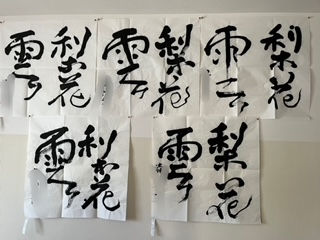 梨花
雲
梨花
雲
梨花
雲
梨花
雲
梨花
雲